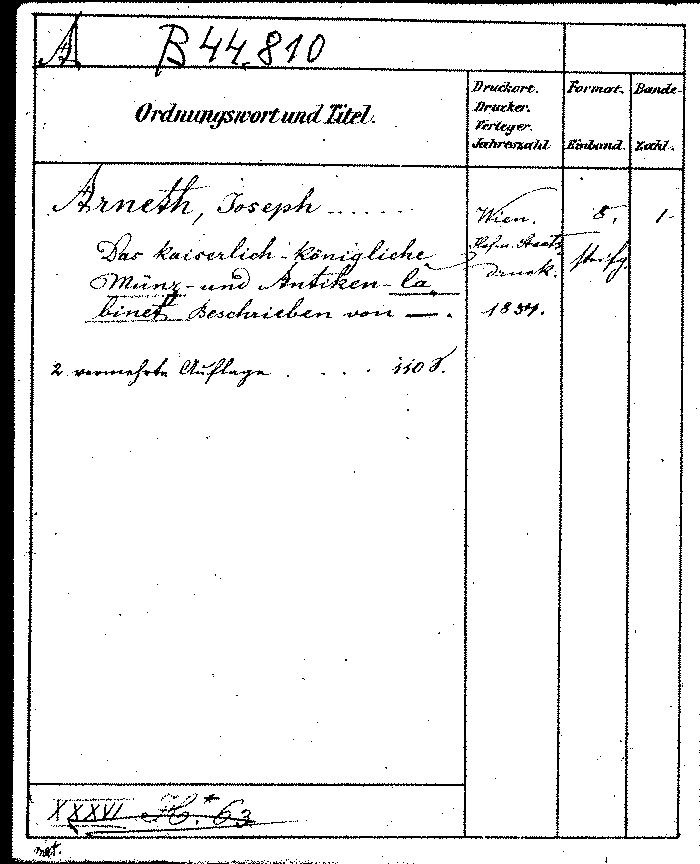 A B 44.810
Ordnungswort und Titel.
Druckort.
Drucker.
Verleger.
Jahreszahl
Format.
Einband.
Bände-
Zahl.
Arneth, Joseph ......
Das kaiserlich-königliche
Münz- und Antiken-Ca„
binet Beschrieben von —.
2 vermehrte Auflage . . . . 110 S.
Wien.
Hof. u. Staats
druck.
8.
1
XXXVI H.* 63